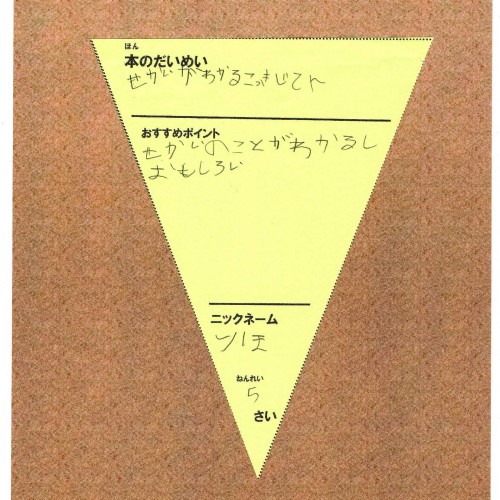 ほん
本のだいめい
せかいがわかるこっきじてん
おすすめポイント
せかいのことがわかるし
おもしろい
ニックネーム
ねんれい
5
さい